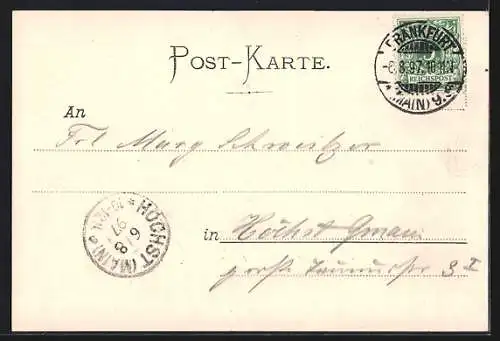 POST-KARTE.
FRANKFURT
-6.8.97. 10-11 V
* (MAIN) 9.
REICHSPOST
An
Frl Schweitzer
HÖCHST (MAIN)
6/8
97
in Höchst a/main
große Taunusstr 3 I